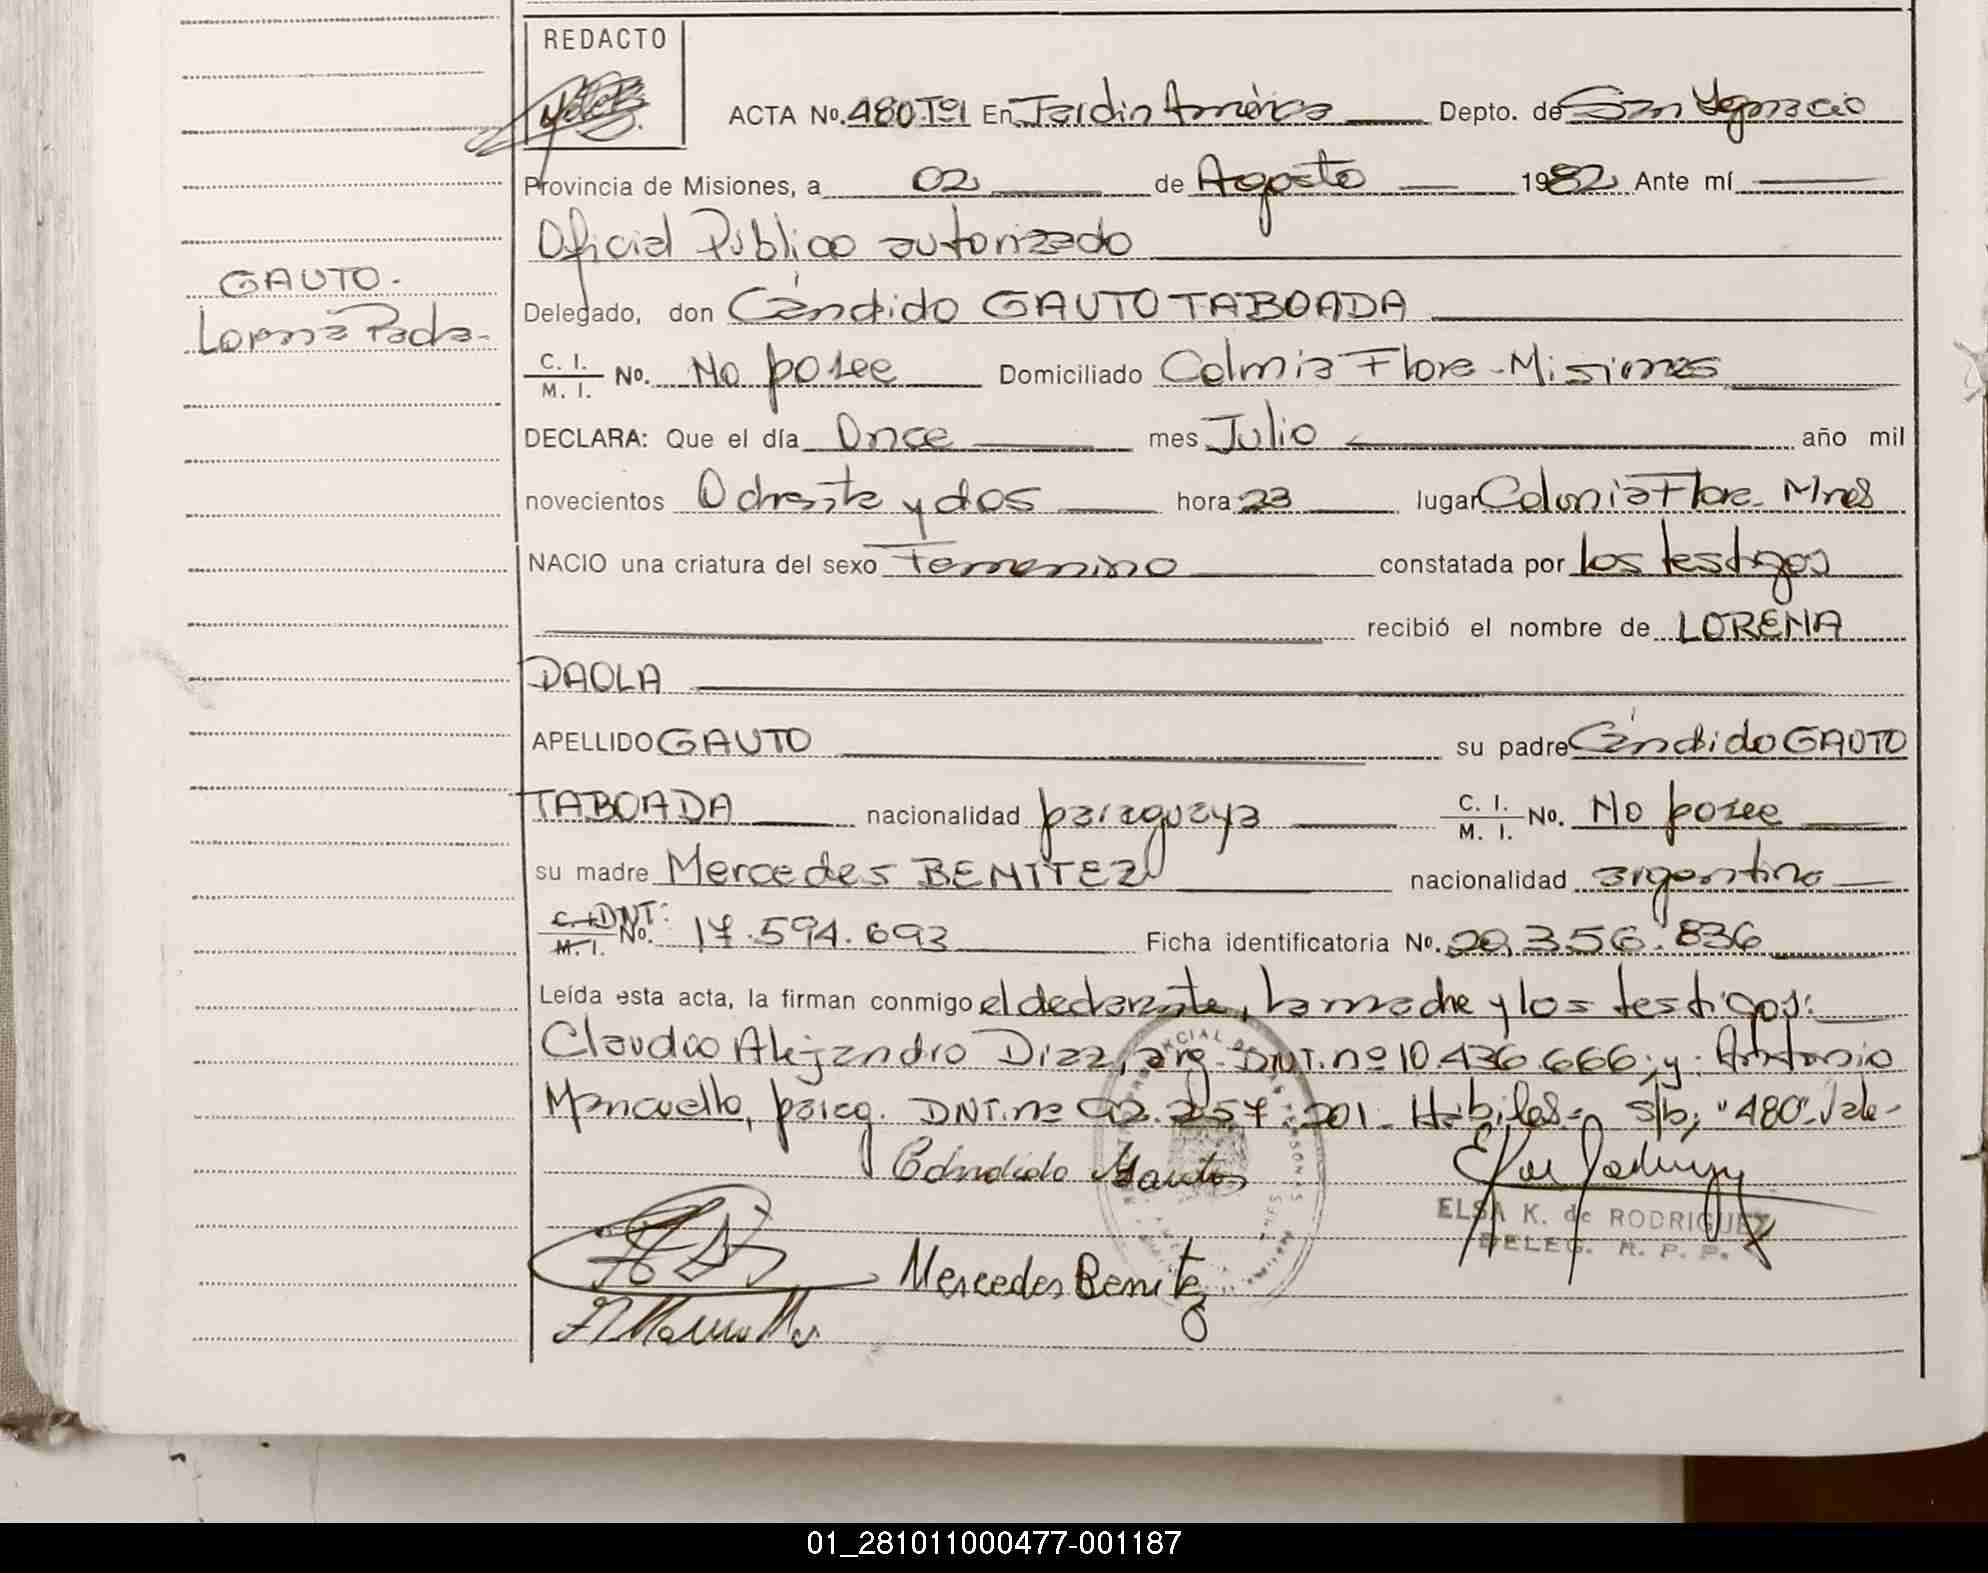 REDACTO
ACTA No. 480 Tº1 En Jardín América Depto. de San Ignacio
Provincia de Misiones, a 02 de Agosto 1982 Ante mí
Oficial Público autorizado
GAUTO.-
Lorena Paola.-
Delegado, don Cándido GAUTO TABOADA
C. I. / M. I. No. No posee Domiciliado Colonia Flora - Misiones
DECLARA: Que el día Once mes Julio año mil
novecientos Ochenta y dos hora 23 lugar Colonia Flora - Mnes
NACIO una criatura del sexo Femenino constatada por los testigos
recibió el nombre de LORENA
PAOLA
APELLIDO GAUTO su padre Cándido GAUTO
TABOADA nacionalidad paraguaya C. I. / M. I. No. No posee
su madre Mercedes BENITEZ nacionalidad argentina
C. I. / M. I. DNI: No. 17.594.693 Ficha identificatoria No. 20.356.836
Leída esta acta, la firman conmigo el declarante, la madre y los testigos:
Claudio Alejandro Diaz, arg. DNI. nº 10.436.666; y: Antonio
Mancuello, parag. DNI. nº 92.257.201.- Hábiles.- s/b; "480". Vale.-
Candido Gauto
ELSA K. de RODRIGUEZ
DELEG. R. P. P.
Mercedes Benitez
01_281011000477-001187